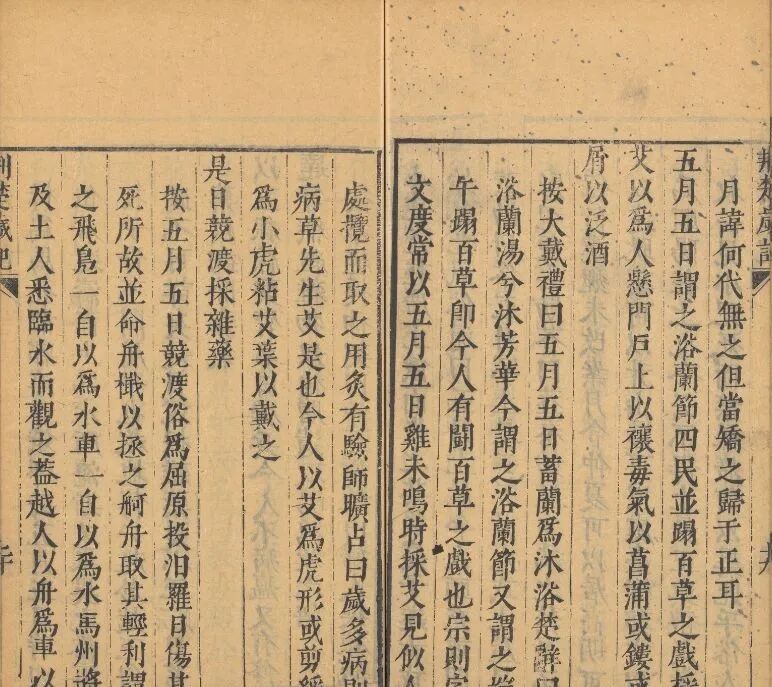 荆楚歲記
月諱何代無之但當矯之歸于正耳
五月五日謂之浴蘭節四民並蹋百草之戲採
艾以爲人懸門戶上以禳毒氣以菖蒲或鏤或
屑以泛酒
按大戴禮曰五月五日蓄蘭爲沐浴楚辭曰
浴蘭湯兮沐芳華今謂之浴蘭節又謂之
午蹋百草卽今人有鬪百草之戲也宗則字
文度常以五月五日雞未鳴時採艾見似人
處攬而取之用灸有驗師曠占曰歲多病則
病草先生艾是也今人以艾爲虎形或剪綵
爲小虎粘艾葉以戴之
是日競渡採雜藥
按五月五日競渡俗爲屈原投汨羅日傷其
死所故並命舟檝以拯之舸舟取其輕利謂
之飛鳧一自以爲水車一自以爲水馬州將
及土人悉臨水而觀之葢越人以舟爲車以
荆楚歲記